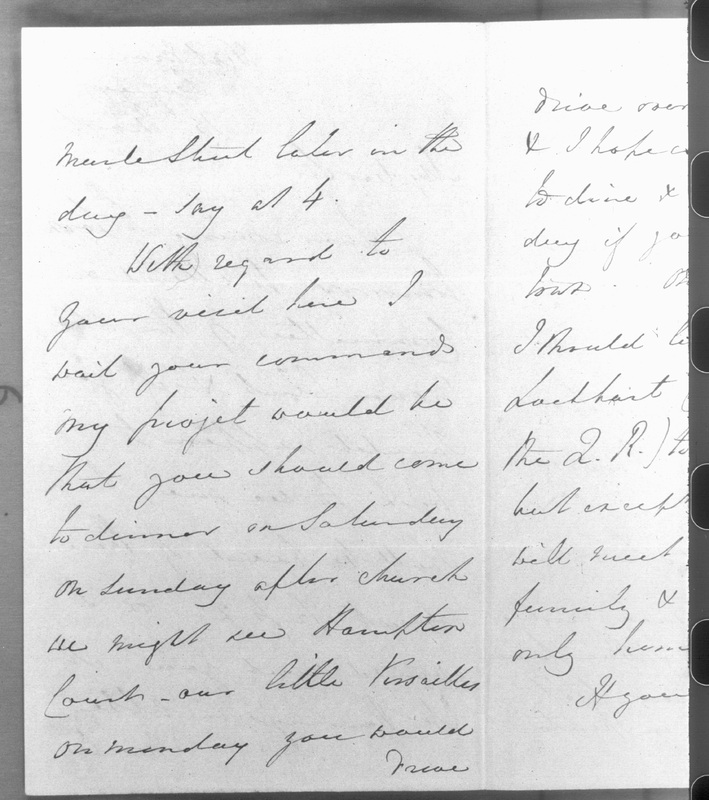 Street later in the
day - say at 4.
With regard to
your visit here I
wait your commands
my projet would be
that you should come
to dinner on Saturday
on Sunday after church
we might see Hampton
Court - our little Versailles
on monday you would
drive
drive over
& I hope
to dine &
day if yo
town.
I should li
Lockhart (
the Q. R.) to
but except
will meet
family &
only hom
If you